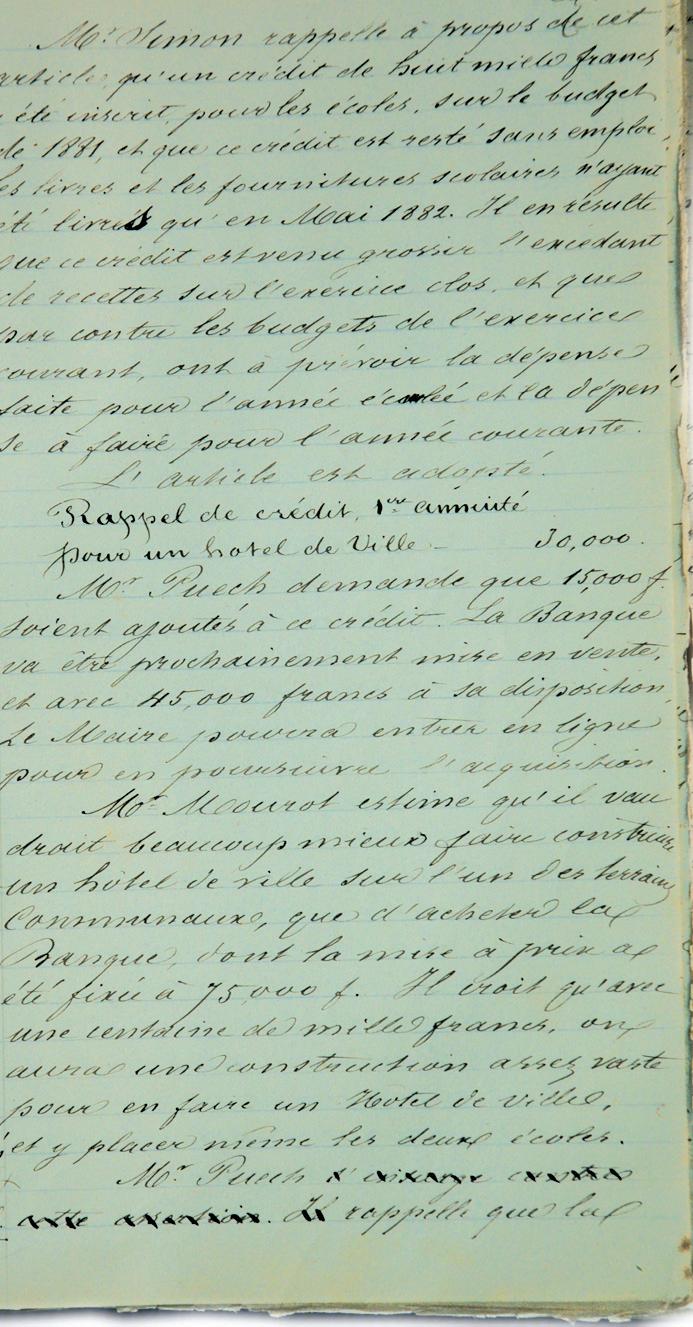 Mr. Simon rappelle à propos de cet
article, qu'un crédit de huit mille francs
été inscrit, pour les écoles, sur le budget
de 1881, et que ce crédit est resté sans emploi,
les livres et les fournitures scolaires n'ayant
été livrés qu'en Mai 1882. Il en résulte
que ce crédit est venu grossir l'excédant
de recettes sur l'exercice clos, et que
par contre les budgets de l'exercice
courant, ont à prévoir la dépense
faite pour l'année écoulée et la dépen
se à faire pour l'année courante.
L'article est adopté.
Rappel de crédit, 1ere annuité
pour un hotel de Ville - 30,000.
Mr. Puech demande que 15,000 f.
soient ajoutés à ce crédit. La Banque
va être prochainement mise en vente,
et avec 45,000 francs à sa disposition,
Le Maire pourra entrer en ligne
pour en poursuivre l'acquisition.
Mr. Mourot estime qu'il vau
drait beaucoup mieux faire construire
un hôtel de ville sur l'un des terrains
Communaux, que d'acheter la
Banque, dont la mise à prix a
été fixée à 75,000 f. Il croit qu'avec
une centaine de mille francs, on
aura une construction assez vaste
pour en faire un Hotel de Ville,
et y placer même les deux écoles.
Mr. Puech
Il rappelle que la